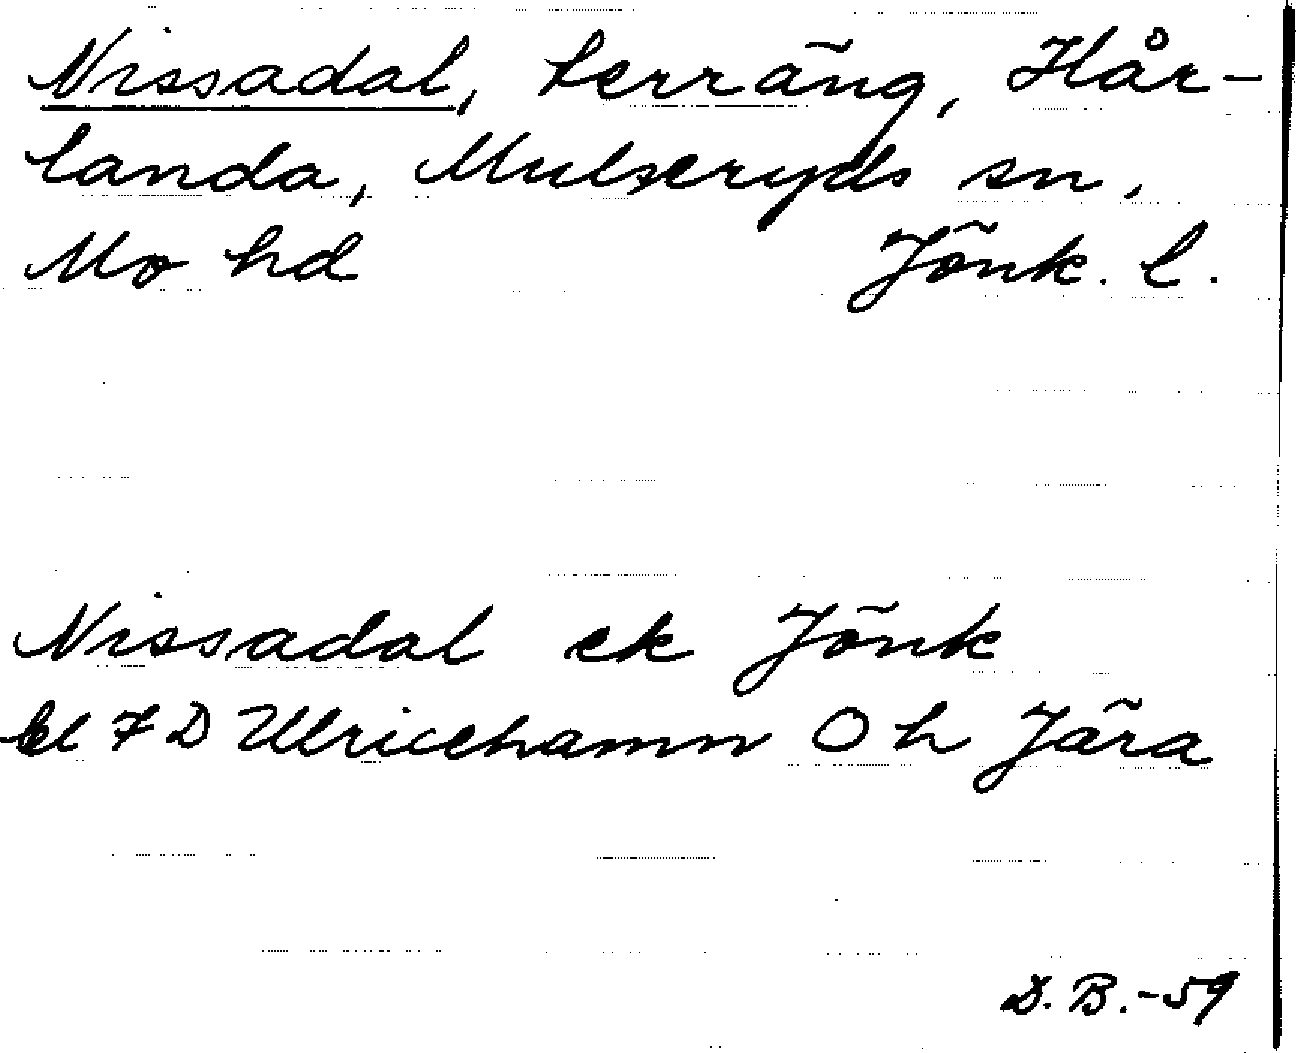 Nissadal, terräng, Hår-
landa, Mulseryds sn,
Mo hd Jönk. l.
Nissadal ek Jönk
bl 7 D Ulricehamn O h Jära
D. B. -59